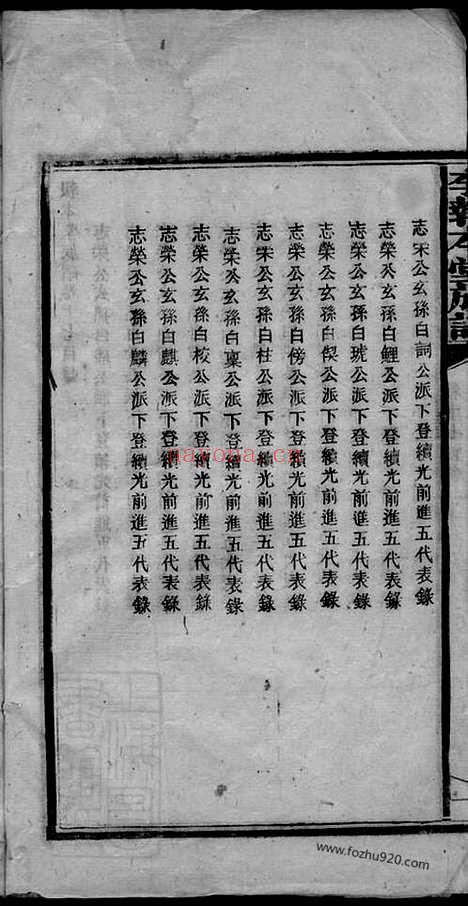 志榮公玄孫白詞公派下登續光前進五代表錄
志榮公玄孫白鯉公派下登續光前進五代表錄
志榮公玄孫白琥公派下登續光前進五代表錄
志榮公玄孫白公派下登續光前進五代表錄
志榮公玄孫白傍公派下登續光前進五代表錄
志榮公玄孫白柱公派下登續光前進五代表錄
志榮公玄孫白稟公派下登續光前進五代表錄
志榮公玄孫白校公派下登續光前進五代表錄
志榮公玄孫白麒公派下登續光前進五代表錄
志榮公玄孫白麟公派下登續光前進五代表錄
www.fozhu920.com